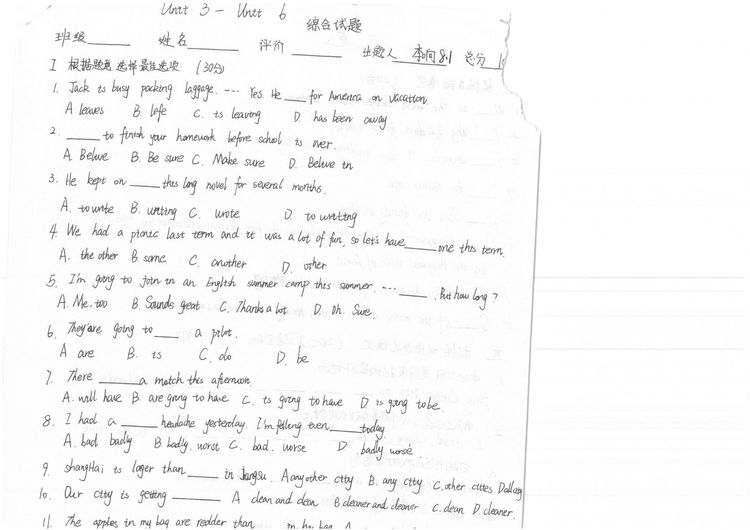 Unit 3 - Unit 6
综合试题
班级 姓名 评价 出题人 李响8.1 总分
I 根据题意选择最佳选项 (30分)
1. Jack is busy packing laggage. --- Yes. He ___ for America on vacation.
A leaves B. lefe C. is leaving D. has been away
2. ___ to finish your homework before school is over.
A. Belive B. Be sure C. Make sure D. Belive in
3. He kept on ___ this long novel for several months.
A. to write B. writing C. wrote D. to writing
4. We had a picnic last term and it was a lot of fun, so let's have ___ one this term.
A. the other B. some C. another D. other
5. I'm going to join in an English summer camp this summer. --- ___ . But how long?
A. Me, too B. Sounds great C. Thanks a lot D. Oh. Sure.
6. They are going to ___ a pilot.
A are B. is C. do D. be
7. There ___ a match this afternoon.
A. will have B. are going to have C. is going to have D is going to be.
8. I had a ___ headache yesterday. I'm felling even ___ today.
A. bad badly B. badly. worst C. bad. worse D. badly worse
9. shangHai is lager than ___ in Jiangsu. A any other city B. any city C. other cities D all city
10. Our city is getting ___ A clean and clean B cleaner and cleaner C. clean D. cleaner.
11. The apples in my bag are redder than ___ in